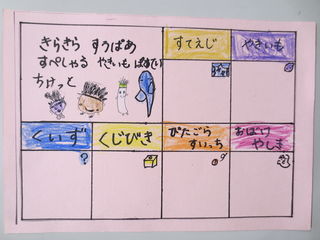 きらきら すうぱあ
すぺしゃる やきいも ぱあてい
ちけっと
すてえじ
やきいも
くいず
くじびき
ぴたごら
すいっち
おばけ
やしき
?